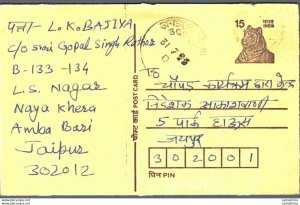 पता- L.K.BAJIYA
C/o Shri Gopal Singh Rathor
B-133-134
L.S. Nagar
Naya Khera
Amba Bari
Jaipur
302012
पोस्ट कार्ड POST CARD
15
भारत INDIA
31.7.86
निदेशक आकाशवाणी
5 पार्क हाउस
जयपुर
302001
पिन PIN